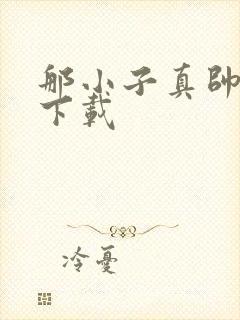 那小子真帥
下載
冷憂